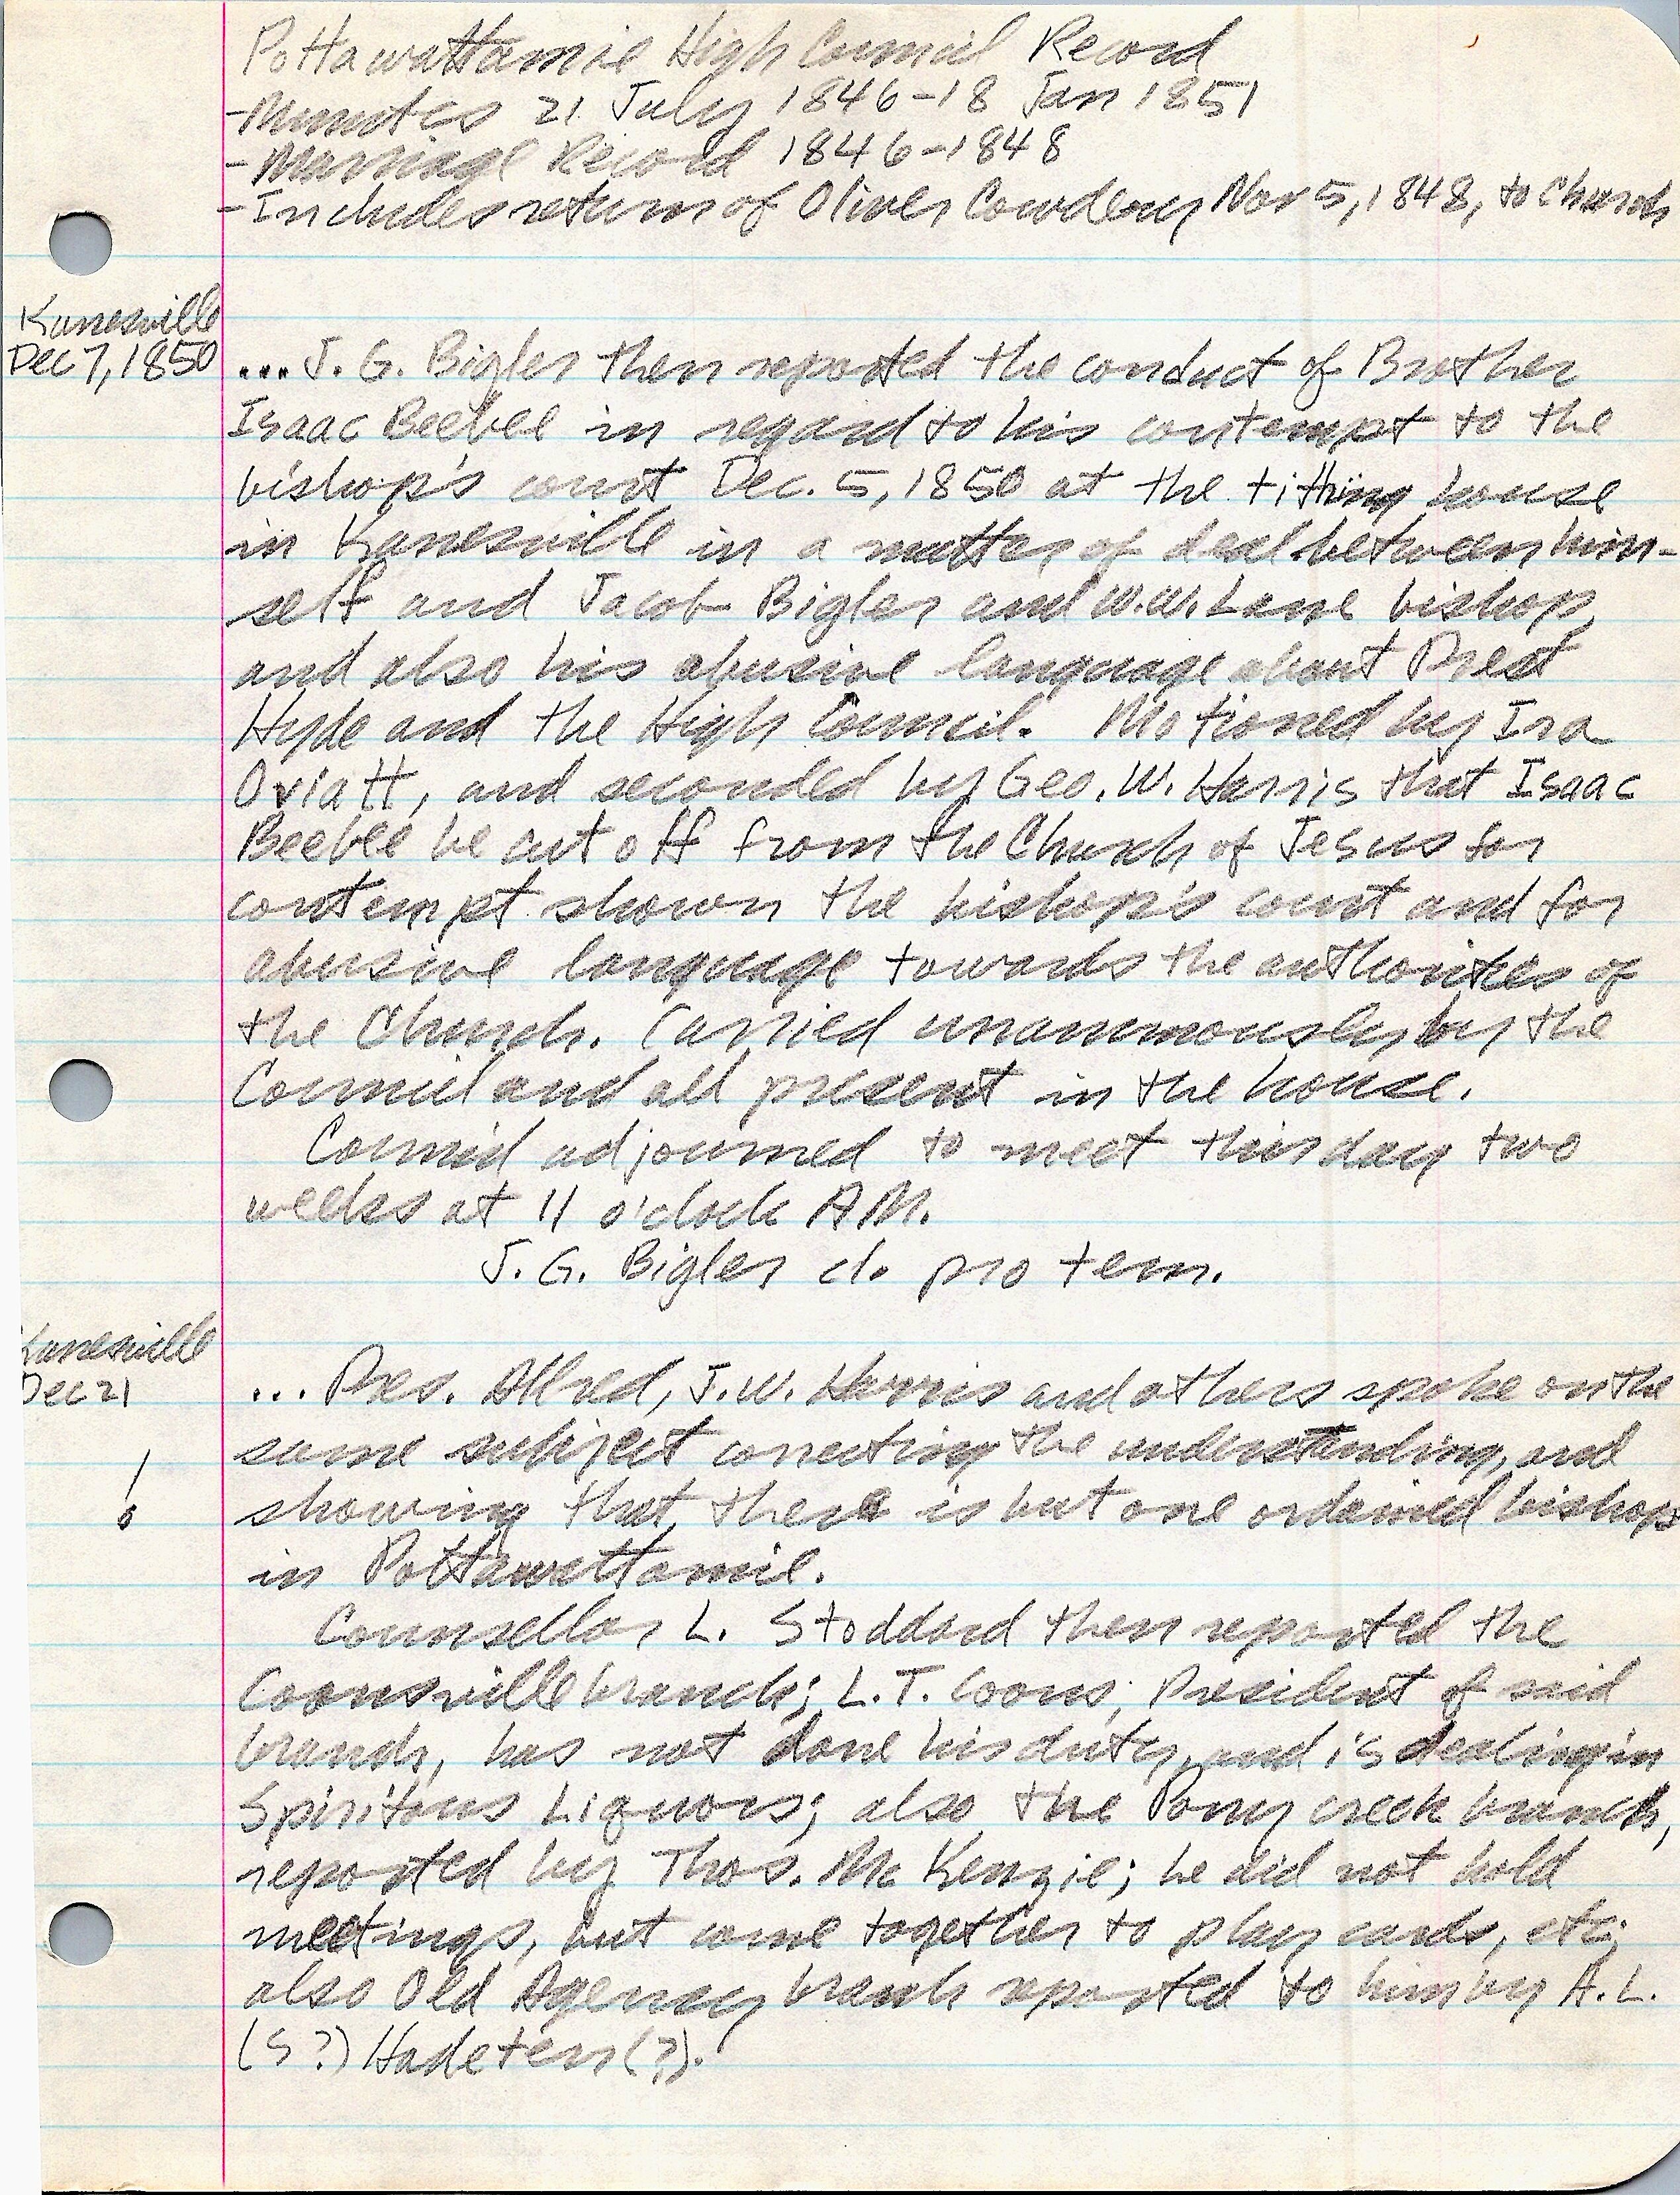 Pottawattamie High Council Record
- Minutes 21 July 1846-18 Jan 1851
- Marriage Record 1846-1848
- Includes return of Oliver Cowdery Nov 5, 1848, to Church
Kanesville
Dec 7, 1850
... J. G. Bigler then reported the conduct of Brother
Isaac Beebee in regard to his contempt to the
bishop's court Dec. 5, 1850 at the tithing house
in Kanesville in a matter of deal between him-
self and Jacob Bigler and W.W. Lane bishop,
and also his abusive language about Prest
Hyde and the High Council. Motioned by Ira
Oviatt, and seconded by Geo. W. Harris that Isaac
Beebee be cut off from the Church of Jesus for
contempt shown the bishop's court and for
abusive language towards the authorities of
the Church. Carried unanimously by the
Council and all present in the house.
Council adjourned to meet this day two
weeks at 11 o'clock AM.
J. G. Bigler cl. pro tem.
Kanesville
Dec 21
... Pres. Allred, J.W. Harris and others spoke on the
same subject correcting the understanding, and
!
showing that there is but one ordained bishop
in Pottawattamie.
Counsellor L. Stoddard then reported the
Coonsville branch; L.T. Coons, President of said
branch, has not done his duty, and is dealing in
Spiritous Liquors; also the Pony creek branch,
reported by Thos. McKenzie; he did not hold
meetings, but come together to play cards, etc;
also Old Agency branch reported to him by A.L.
(S?) Hadeten(?).